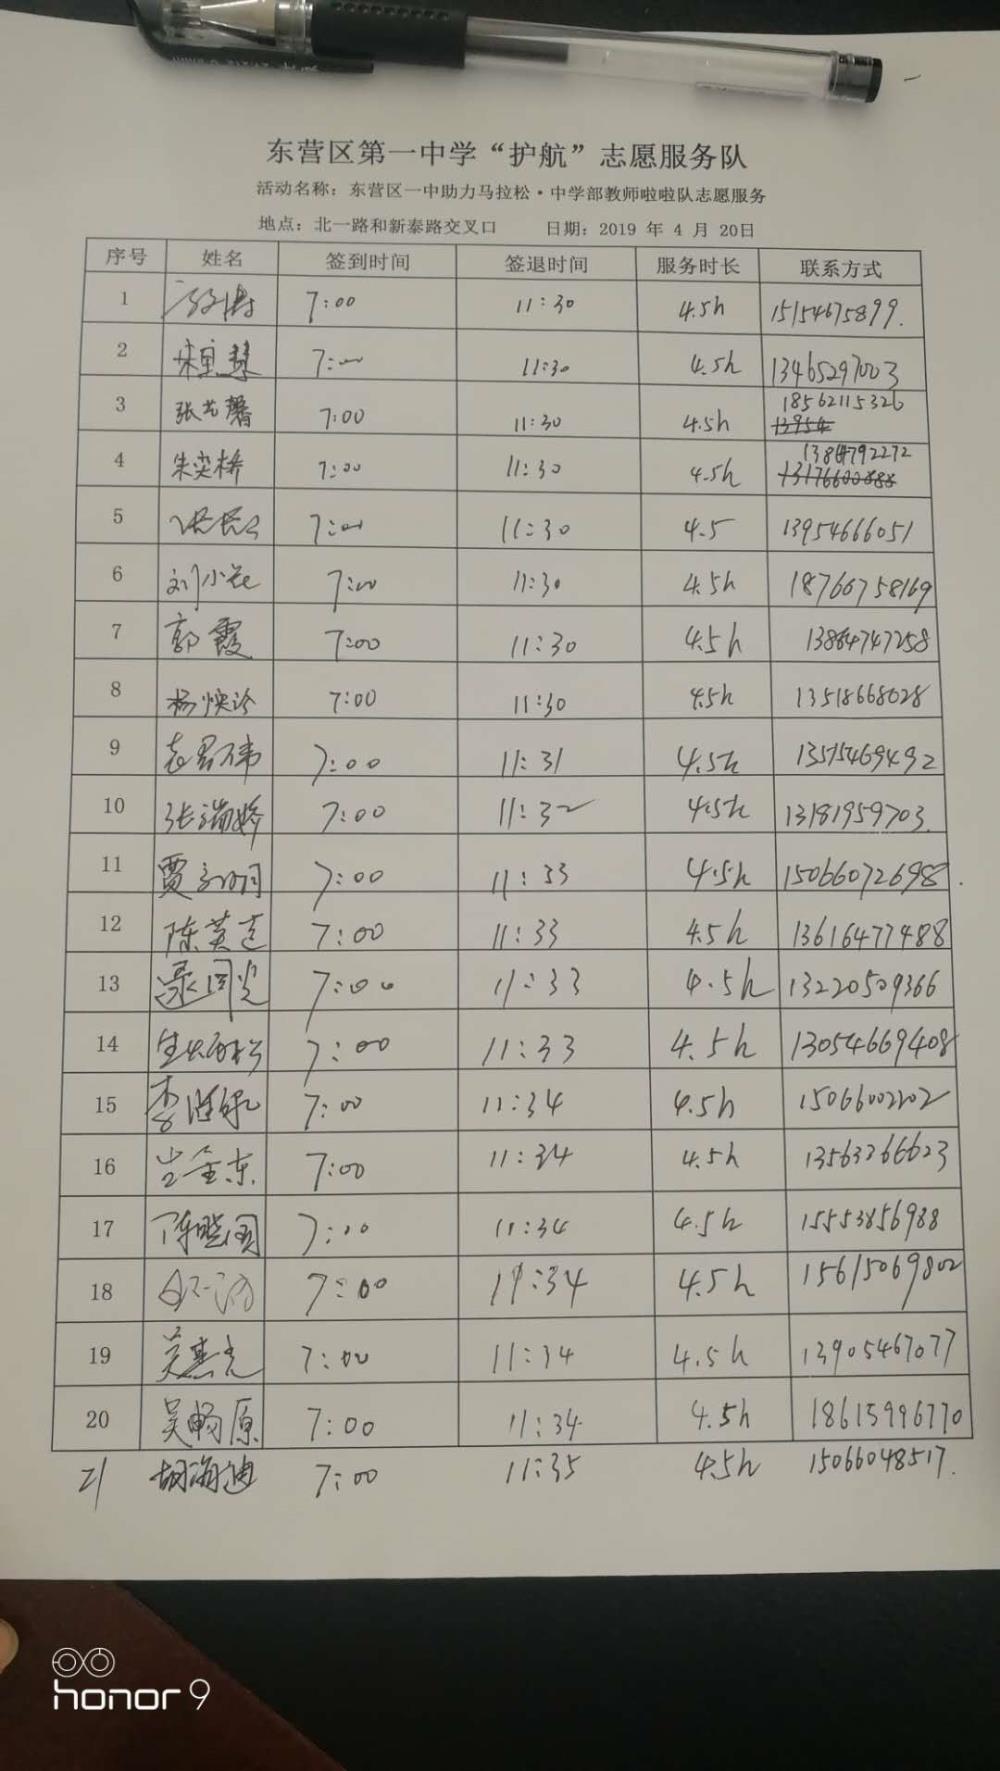 东营区第一中学“护航”志愿服务队
活动名称：东营区一中助力马拉松·中学部教师啦啦队志愿服务
地点：北一路和新泰路交叉口 日期：2019 年 4 月 20日
序号 姓名 签到时间 签退时间 服务时长 联系方式
1 7:00 11:30 4.5h 15154675899.
2 7:00 11:30 4.5h 13465297003
3 张艺馨 7:00 11:30 4.5h 18562115326 13954
4 朱奕桥 7:00 11:30 4.5h 13176600888
5 7:00 11:30 4.5 13954666051
6 刘小花 7:00 11:30 4.5h 18766758169
7 郭霞 7:00 11:30 4.5h 13864747258
8 7:00 11:30 4.5h 13518668028
9 7:00 11:31 4.5h 13515469492
10 张瑞娇 7:00 11:32 4.5h 13181959703.
11 7:00 11:33 4.5h 15066072698.
12 陈英莲 7:00 11:33 4.5h 13616477488
13 7:00 11:33 4.5h 13220509366
14 7:00 11:33 4.5h 13054669408
15 7:00 11:34 4.5h 15066002202
16 岂金东 7:00 11:34 4.5h 13563266623
17 陈晓国 7:00 11:34 4.5h 15553856988
18 7:00 11:34 4.5h 15615069802
19 7:00 11:34 4.5h 13905467077
20 吴畅原 7:00 11:34 4.5h 18615996770
21 胡海迪 7:00 11:35 4.5h 15066048517.
honor 9